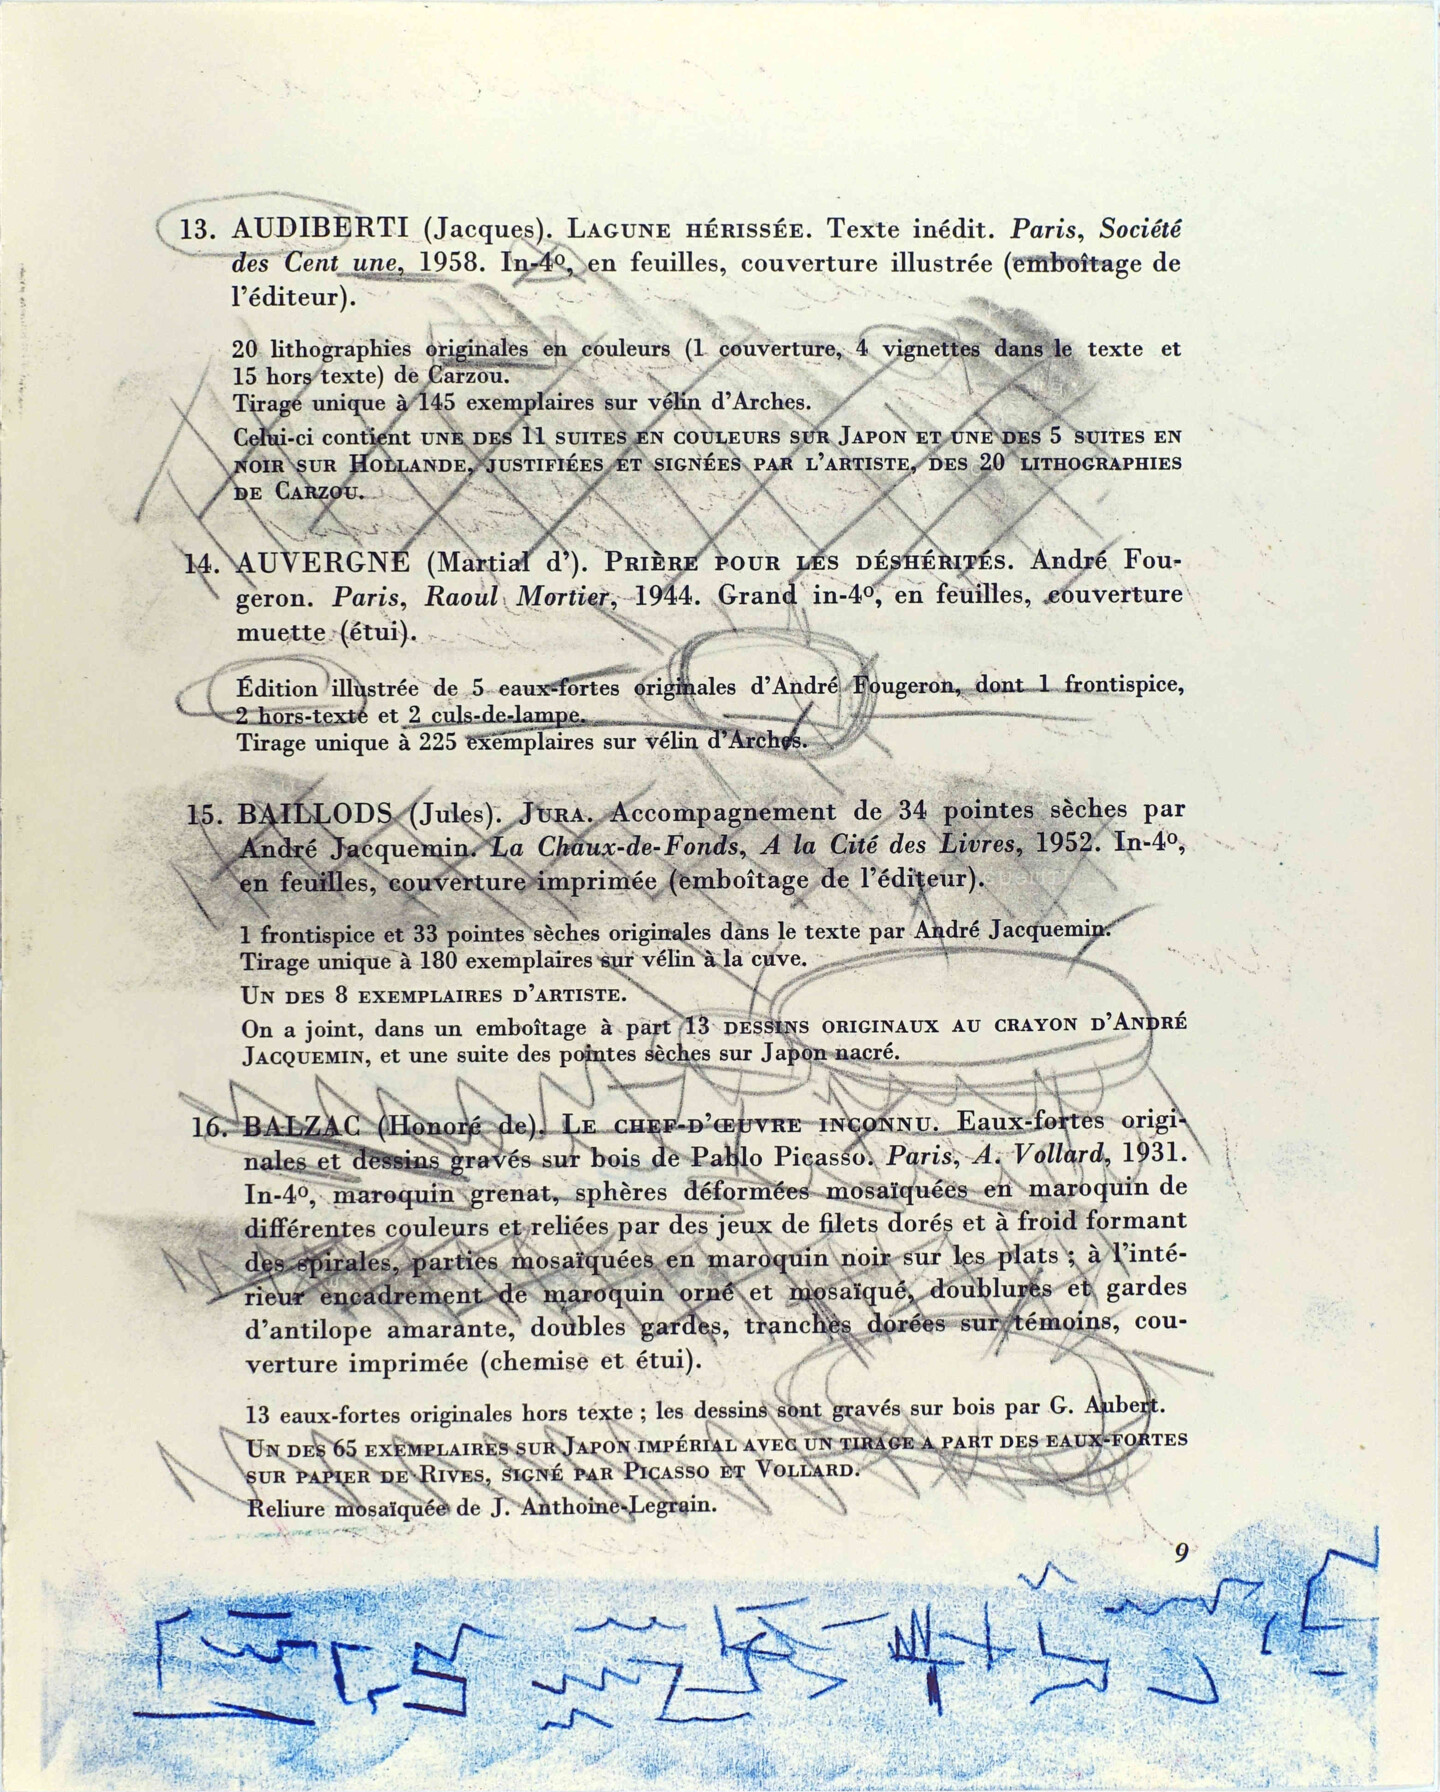 13. AUDIBERTI (Jacques). LAGUNE HÉRISSÉE. Texte inédit. Paris, Société
des Cent une, 1958. In-4º, en feuilles, couverture illustrée (emboîtage de
l'éditeur).
20 lithographies originales en couleurs (1 couverture, 4 vignettes dans le texte et
15 hors texte) de Carzou.
Tirage unique à 145 exemplaires sur vélin d'Arches.
Celui-ci contient UNE DES 11 SUITES EN COULEURS SUR JAPON ET UNE DES 5 SUITES EN
NOIR SUR HOLLANDE, JUSTIFIÉES ET SIGNÉES PAR L'ARTISTE, DES 20 LITHOGRAPHIES
DE CARZOU.
14. AUVERGNE (Martial d'). PRIÈRE POUR LES DÉSHÉRITÉS. André Fou-
geron. Paris, Raoul Mortier, 1944. Grand in-4º, en feuilles, couverture
muette (étui).
Édition illustrée de 5 eaux-fortes originales d'André Fougeron, dont 1 frontispice,
2 hors-texte et 2 culs-de-lampe.
Tirage unique à 225 exemplaires sur vélin d'Arches.
15. BAILLODS (Jules). JURA. Accompagnement de 34 pointes sèches par
André Jacquemin. La Chaux-de-Fonds, A la Cité des Livres, 1952. In-4º,
en feuilles, couverture imprimée (emboîtage de l'éditeur).
1 frontispice et 33 pointes sèches originales dans le texte par André Jacquemin.
Tirage unique à 180 exemplaires sur vélin à la cuve.
UN DES 8 EXEMPLAIRES D'ARTISTE.
On a joint, dans un emboîtage à part 13 DESSINS ORIGINAUX AU CRAYON D'ANDRÉ
JACQUEMIN, et une suite des pointes sèches sur Japon nacré.
16. BALZAC (Honoré de). LE CHEF-D'ŒUVRE INCONNU. Eaux-fortes origi-
nales et dessins gravés sur bois de Pablo Picasso. Paris, A. Vollard, 1931.
In-4º, maroquin grenat, sphères déformées mosaïquées en maroquin de
différentes couleurs et reliées par des jeux de filets dorés et à froid formant
des spirales, parties mosaïquées en maroquin noir sur les plats ; à l'inté-
rieur encadrement de maroquin orné et mosaïqué, doublures et gardes
d'antilope amarante, doubles gardes, tranches dorées sur témoins, cou-
verture imprimée (chemise et étui).
13 eaux-fortes originales hors texte ; les dessins sont gravés sur bois par G. Aubert.
UN DES 65 EXEMPLAIRES SUR JAPON IMPÉRIAL AVEC UN TIRAGE A PART DES EAUX-FORTES
SUR PAPIER DE RIVES, SIGNÉ PAR PICASSO ET VOLLARD.
Reliure mosaïquée de J. Anthoine-Legrain.
9